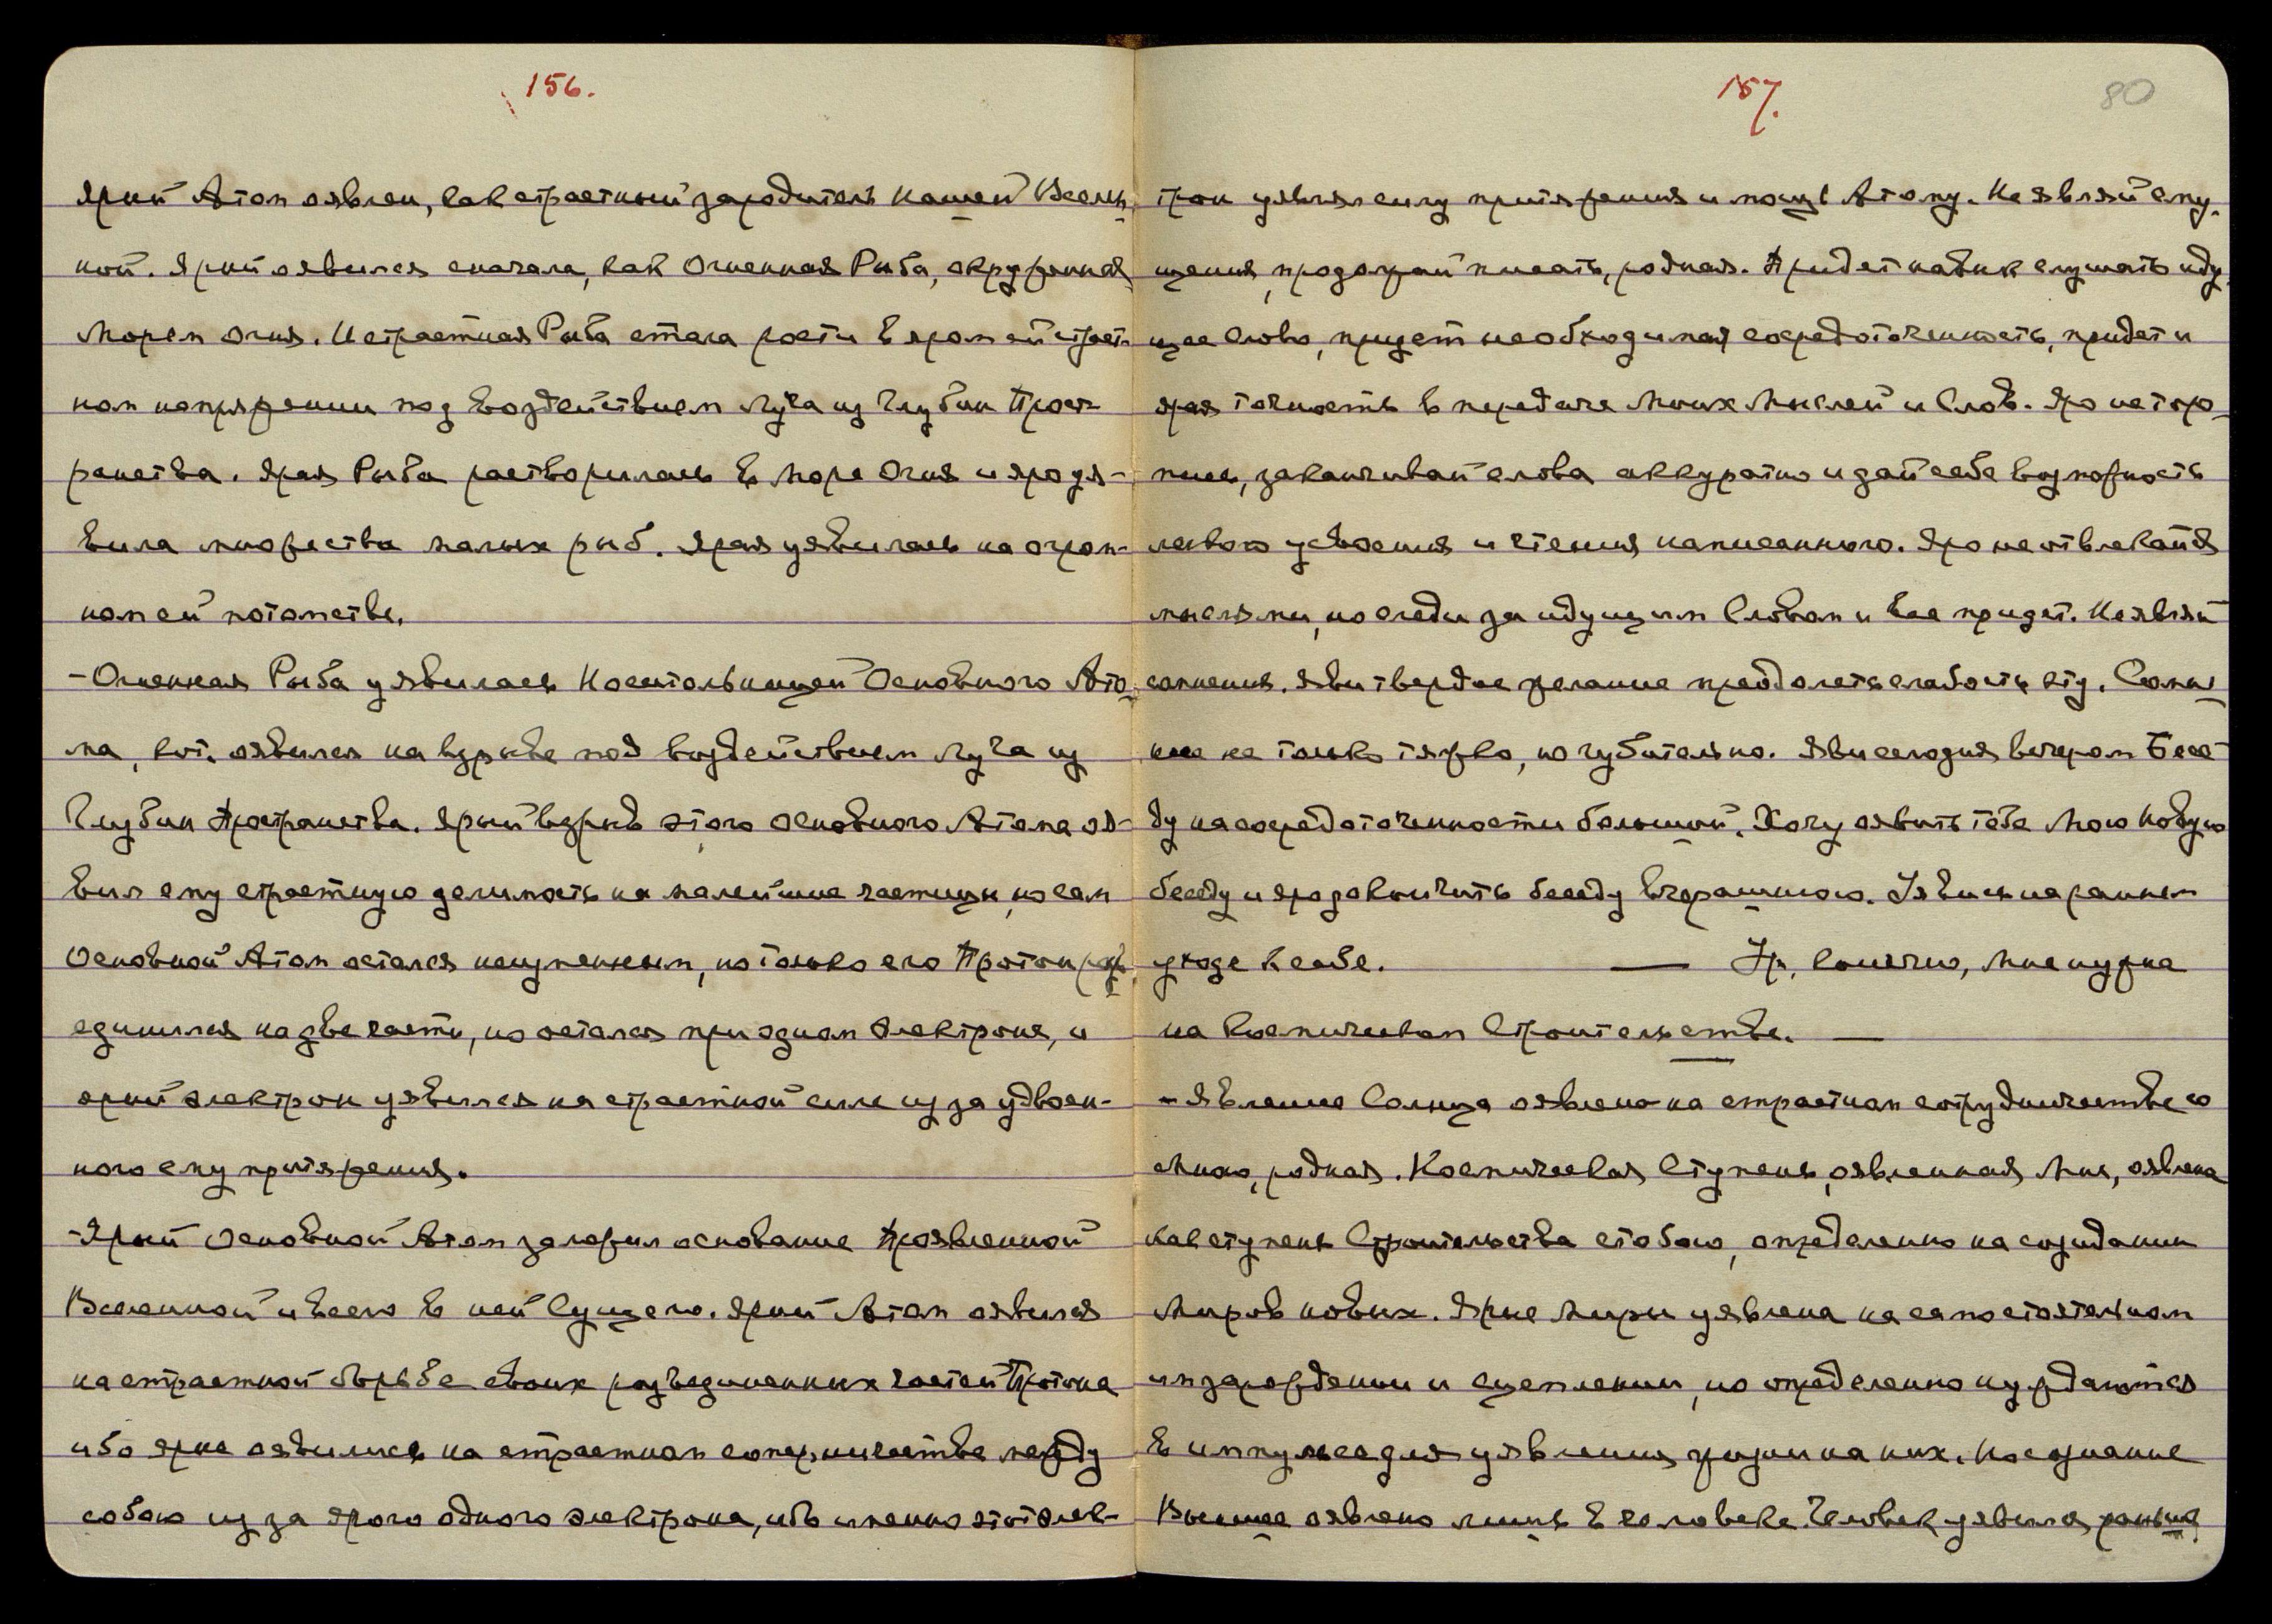 156.
Ярый Атом оявлен, как страстный зародитель нашей Вселен-
ной. Ярый оявился сначала, как Огненная Рыба, окруженная
морем огня. И страстная Рыба стала расти в яром ей страст-
ном напряжении под воздействием Луча из Глубин Прост-
ранства. Ярая Рыба растворилась в море Огня и яро уя-
вила множества малых рыб. Ярая уявилась на огром-
ном ей потомстве.
- Огненная Рыба уявилась Носительницей Основного Ато-
ма, кот. оявился на взрыве под воздействием Луча из
Глубин Пространства. Ярый взрыв этого основного Атома оя-
вил ему страстную делимость на малейшие частицы, но сам
Основной Атом остался неизменным, но только его Протон разъ-
единился на две части, но остался при одном Электроне, и
ярый электрон уявился на страстной силе из за удвоен-
ного ему притяжения.
- Ярый Основной Атом заложил основание Проявленной
Вселенной и всего в ней Сущего. Ярый Атом оявился
на страстной борьбе своих разъединенных частей Протона
ибо ярые оявились на страстном соперничестве между
собою из за ярого одного электрона, ибо именно этот элек-
157.
80
трон уявлял силу притяжения и мощь Атому. Не являй сму-
щения, продолжай писать, родная. Придет навык слушать иду-
щее Слово, придет необходимая сосредоточенность, придет и
ярая точность в передаче Моих Мыслей и Слов. Яро не торо-
пись, заканчивай слова аккуратно и дай себе возможность
легкого усвоения и чтения написанного. Яро не отвлекайся
мыслями, но следи за идущим Словом и все придет. Не являй
сомнения. Яви твердое желание преодолеть слабость эту. Сомне-
ние не только тяжко, но губительно. Яви сегодня вечером Бесе-
ду на сосредоточенности большой. Хочу оявить тебе Мою Новую
беседу и яро закончить беседу вчерашнюю. Уявись на раннем
уходе к себе. — Ур. конечно, Мне нужна
на Космическом Строительстве. —
- Явление Солнца оявлено на страстном сотрудничестве со
Мною, родная. Космическая Ступень, оявленная Мне, оявлена
как ступень Строительства с тобою, определенно на созидании
Миров новых. Ярые Миры уявлены на самостоятельном
им зарождении и сцеплении, но определенно нуждаются
в импульсе для уявления жизни на них. Но сознание
Высшее оявлено лишь в человеке. Человек уявился раньше